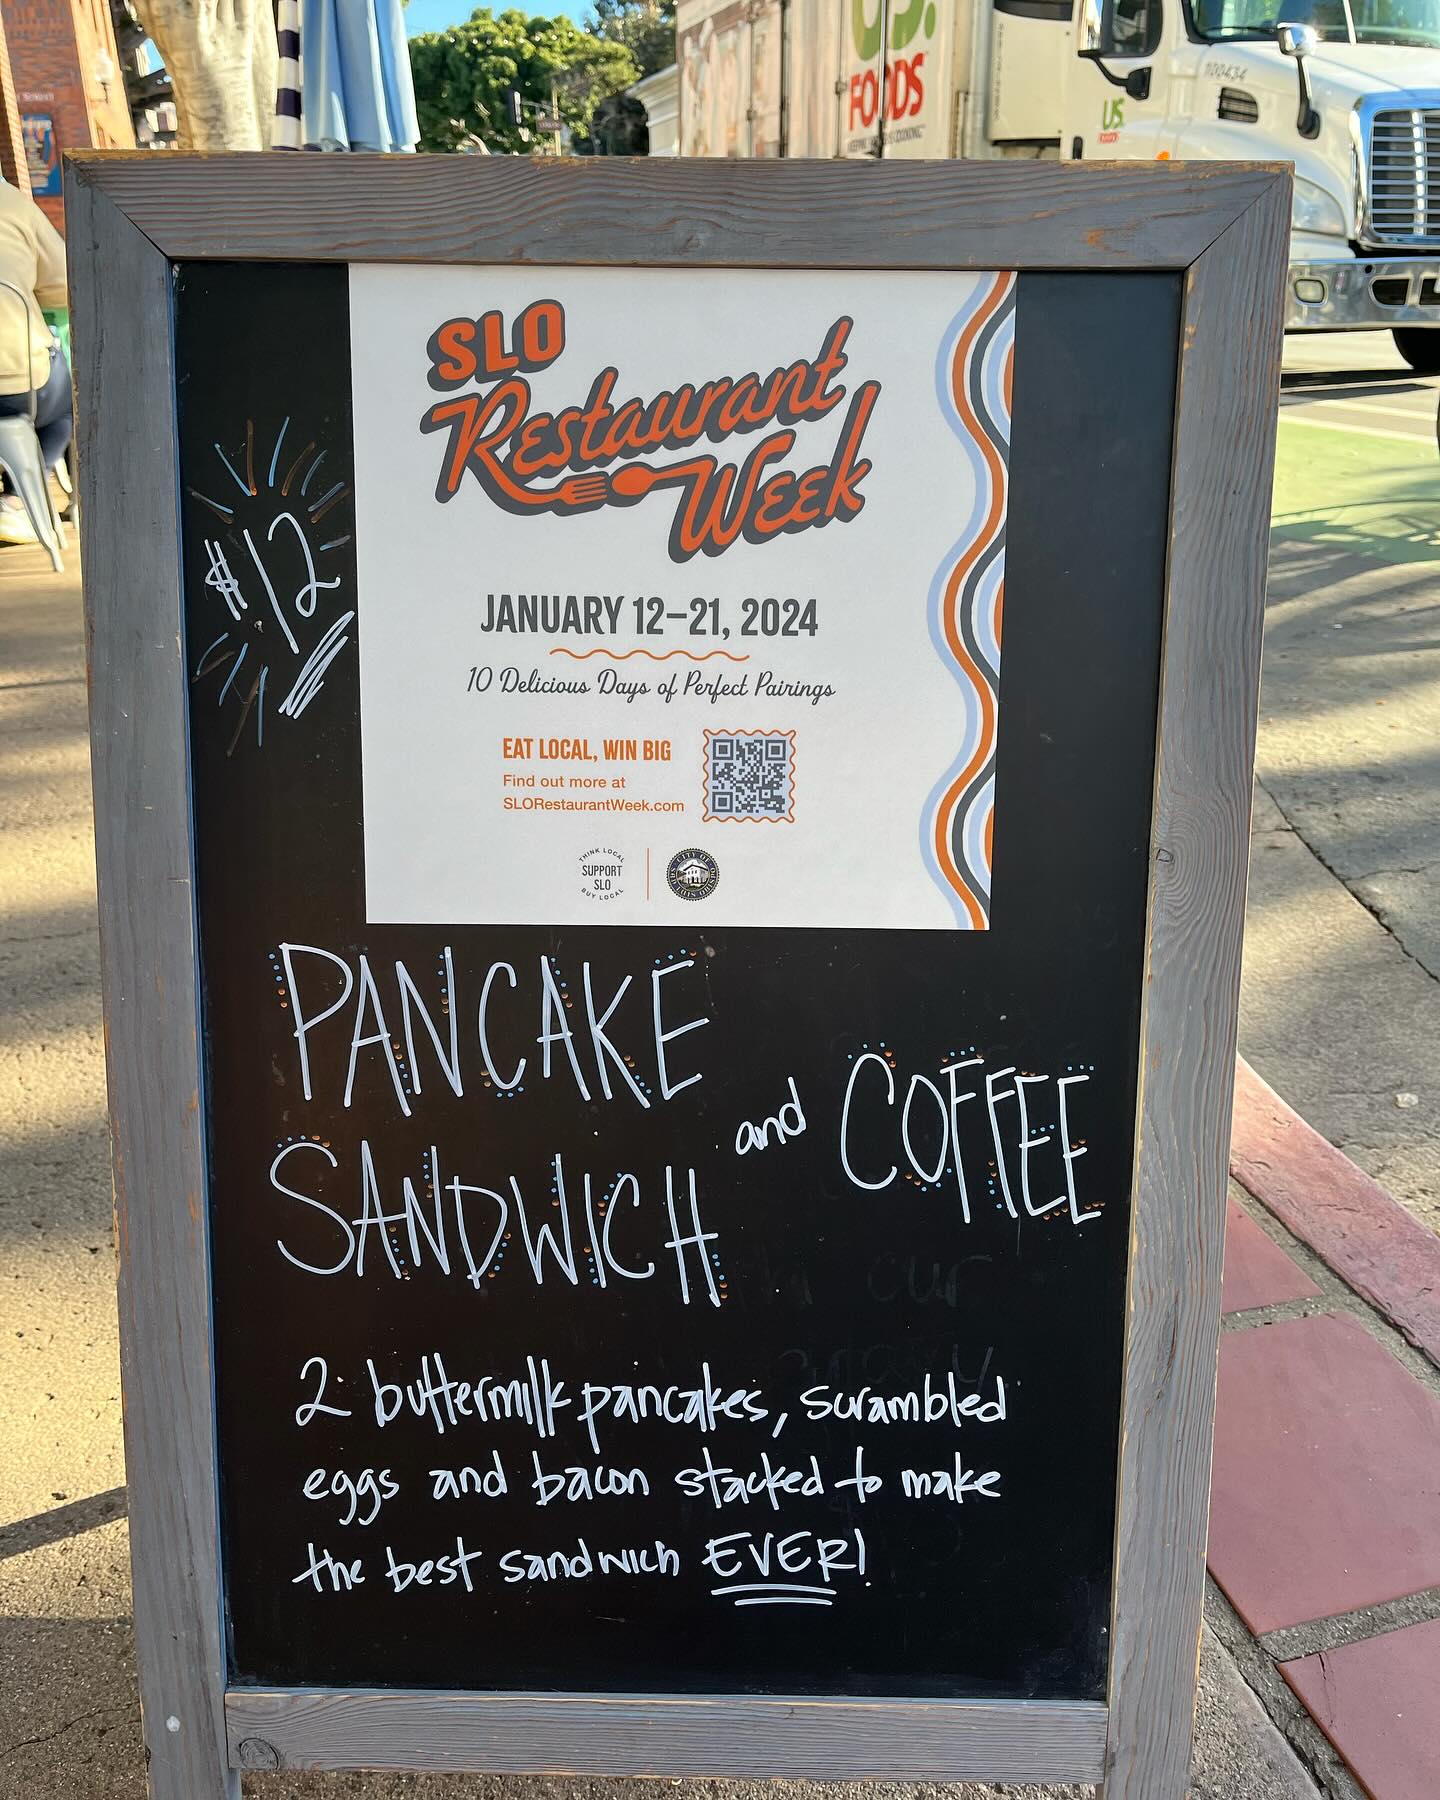 US.
FOODS
100434
US.
FOODS
SLO
Restaurant
Week
JANUARY 12–21, 2024
10 Delicious Days of Perfect Pairings
EAT LOCAL, WIN BIG
Find out more at
SLORestaurantWeek.com
THINK LOCAL
SUPPORT
SLO
BUY LOCAL
CITY OF
SAN LUIS OBISPO
$12
PANCAKE
SANDWICH
and
COFFEE
2 buttermilk pancakes, scrambled
eggs and bacon stacked to make
the best sandwich EVER!